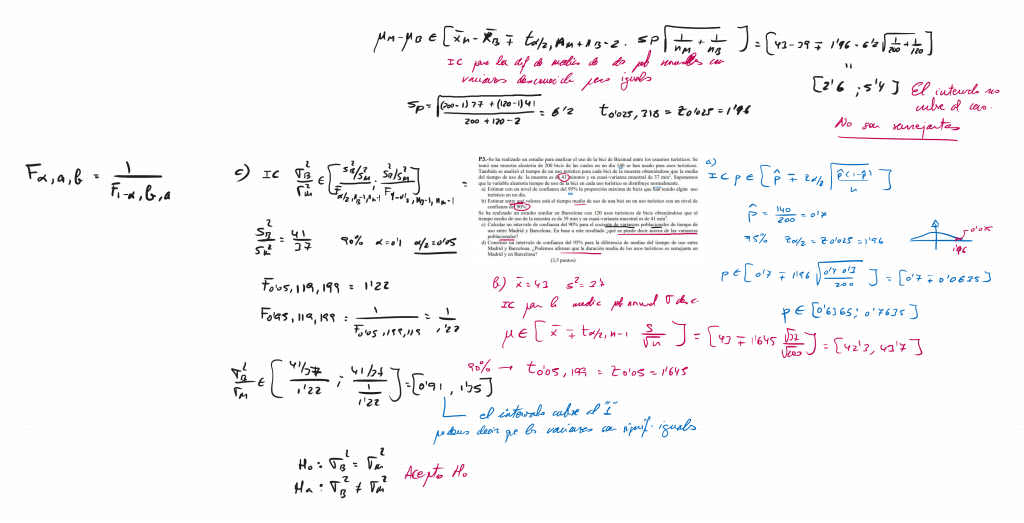 μM-μB ∈ [x̄M - x̄B ∓ tα/2, nM+nB-2 · Sp√(1/nM + 1/nB)] = [43-39 ∓ 1'96 · 6'2 √(1/200 + 1/120)]
IC para la dif de medias de dos pob normales con
varianzas desconocidas pero iguales
=
[2'6 ; 5'4]
El intervalo no
cubre el cero.
No son semejantes
Sp = √((200-1)37 + (120-1)41 / 200+120-2) = 6'2
t0'025, 318 = z0'025 = 1'96
Fα,a,b = 1 / F1-α,b,a
c) IC σB²/σM² ∈ [SB²/SM² / Fα/2,nB-1,nM-1 ; SB²/SM² / F1-α/2,nB-1,nM-1] =
SB²/SM² = 41/37
90% α=0'1 α/2=0'05
F0'05,119,199 = 1'22
F0'95,119,199 = 1 / F0'05,199,119 = 1 / 1'22
σB²/σM² ∈ [41/37 / 1'22 ; 41/37 / 1/1'22] = [0'91 , 1'35]
el intervalo cubre el "1"
podemos decir que las varianzas son signif. iguales
H0 : σB² = σM²
Ha : σB² ≠ σM²
Acepto H0
P3.-Se ha realizado un estudio para analizar el uso de la bici de Bicimad entre los usuarios turísticos. Se
tomó una muestra aleatoria de 200 bicis de las cuales en un día 140 se han usado para usos turísticos.
También se analizó el tiempo de uso turístico para cada bici de la muestra obteniéndose que la media
del tiempo de uso de la muestra es de 43 minutos y su cuasi-varianza muestral de 37 min². Suponemos
que la variable aleatoria tiempo de uso de la bici en cada uso turístico se distribuye normalmente.
a) Estimar con un nivel de confianza del 95% la proporción máxima de bicis que BiciMAD tendrán algún uso
turístico en un día.
b) Estimar entre qué valores está el tiempo medio de uso de una bici en un uso turístico con un nivel de
confianza de 90%.
Se ha realizado un estudio similar en Barcelona con 120 usos turísticos de bicis obteniéndose que el
tiempo medio de uso de la muestra es de 39 min y su cuasi-varianza muestral es de 41 min².
c) Calcular un intervalo de confianza del 90% para el cociente de varianzas poblacionales de tiempo de
uso entre Madrid y Barcelona. En base a este resultado ¿qué se puede decir acerca de las varianzas
poblacionales?
d) Construir un intervalo de confianza del 95% para la diferencia de medias del tiempo de uso entre
Madrid y Barcelona. ¿Podemos afirmar que la duración media de los usos turísticos es semejante en
Madrid y en Barcelona?
(3,5 puntos)
b) x̄=43 s²=37
IC para la media pob normal σ desc.
μ ∈ [x̄ ∓ tα/2, n-1 S/√n] = [43 ∓ 1'645 √37/√200] = [42'3, 43'7]
90% → t0'05, 199 = z0'05 = 1'645
a)
IC p ∈ [p̂ ∓ zα/2 √(p̂(1-p̂)/n)]
p̂ = 140/200 = 0'7
95% zα/2 = z0'025 = 1'96
0'025
1'96
p ∈ [0'7 ∓ 1'96 √(0'7 0'3 / 200)] = [0'7 ∓ 0'0635]
p ∈ [0'6365; 0'7635]